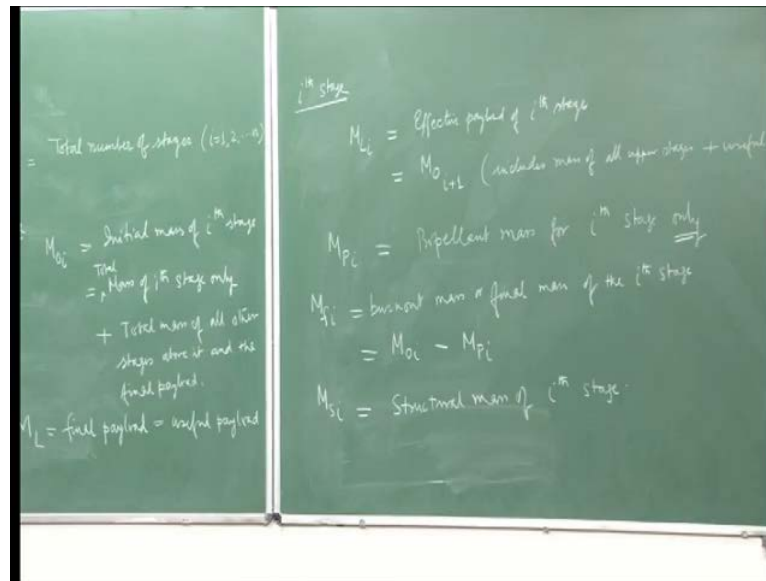 = Total number of stages (i=1,2...n)
M₀ᵢ = Initial mass of iᵗʰ stage
= Total Mass of iᵗʰ stage only
+ Total mass of all other
stages above it and the
final payload.
M_L = final payload = useful payload
iᵗʰ stage
M_Lᵢ = Effective payload of iᵗʰ stage
= M₀ᵢ₊₁ (includes mass of all upper stages + useful
M_Pᵢ = Propellant mass for iᵗʰ stage only
M_fᵢ = burnout mass or final mass of the iᵗʰ stage
= M₀ᵢ - M_Pᵢ
M_Sᵢ = Structural mass of iᵗʰ stage.